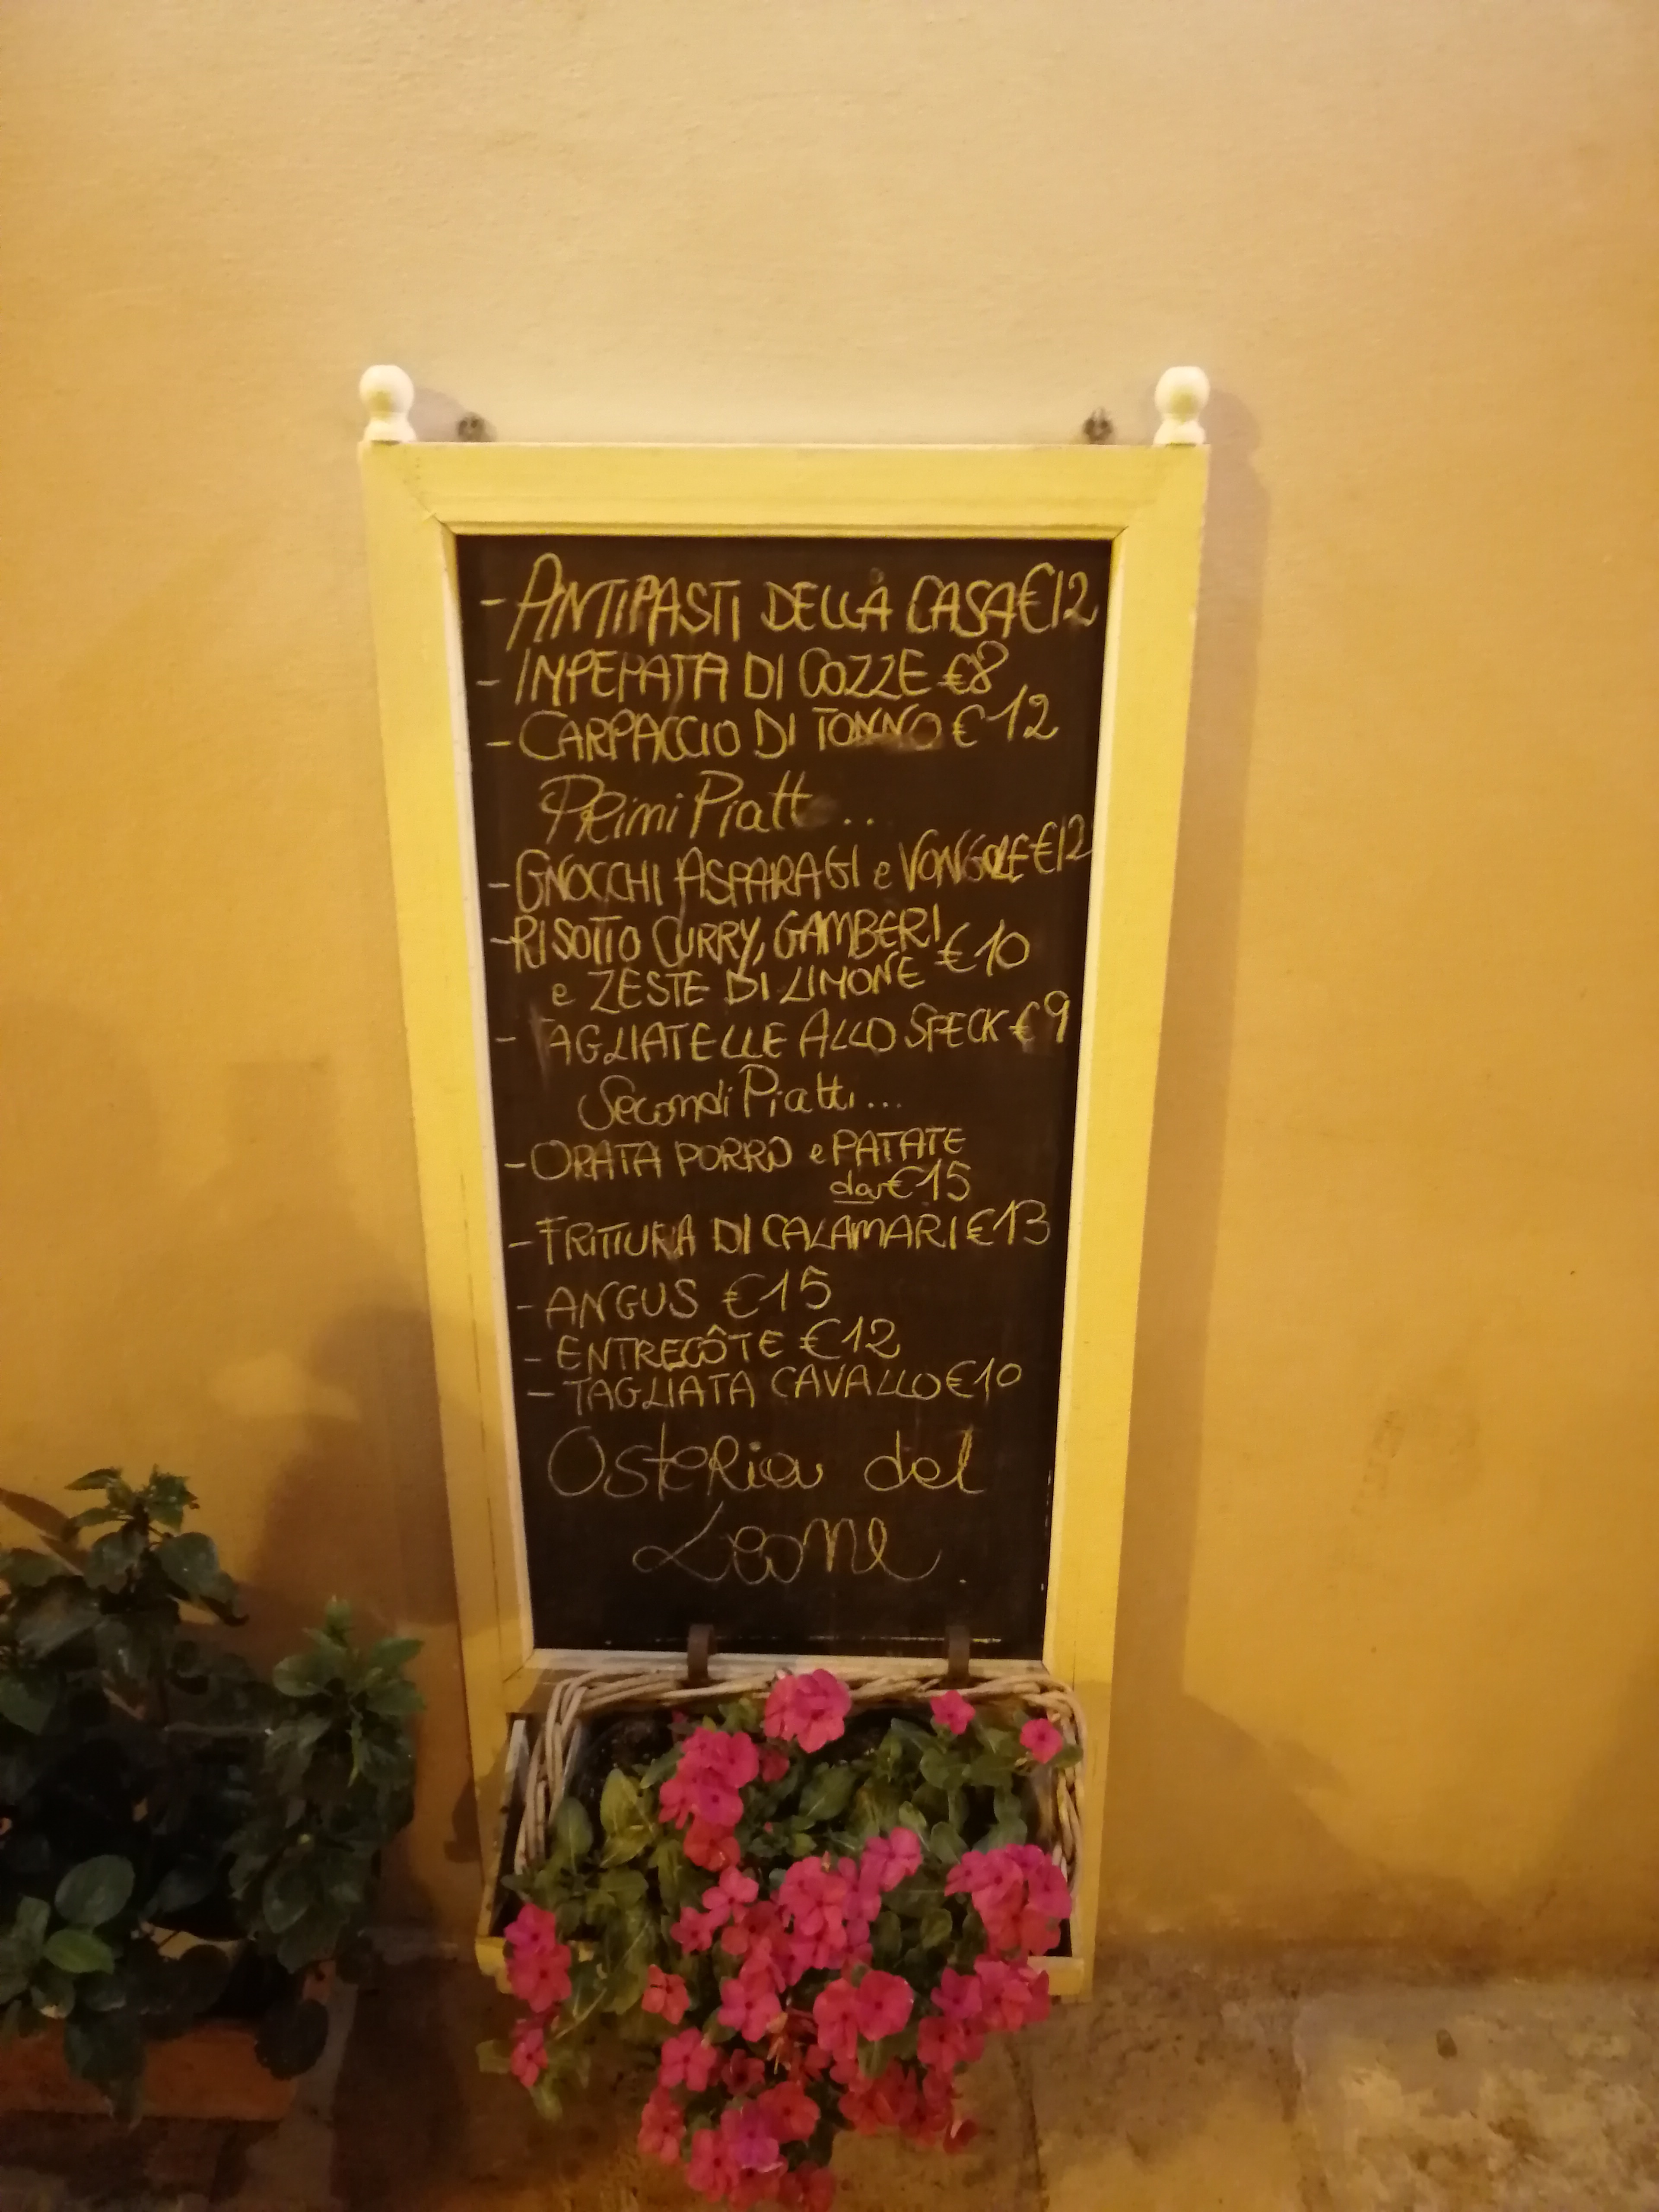 - ANTIPASTI DELLA CASA €12
- INPEPATA DI COZZE €8
- CARPACCIO DI TONNO €12
Primi Piatti ...
- GNOCCHI ASPARAGI e VONGOLE €12
- RISOTTO CURRY, GAMBERI
e ZESTE DI LIMONE €10
- TAGLIATELLE ALLO SPECK €9
Secondi Piatti ...
- ORATA PORRO e PATATE
da €15
- FRITTURA DI CALAMARI €13
- ANGUS €15
- ENTRECÔTE €12
- TAGLIATA CAVALLO €10
Osteria del
Leone.